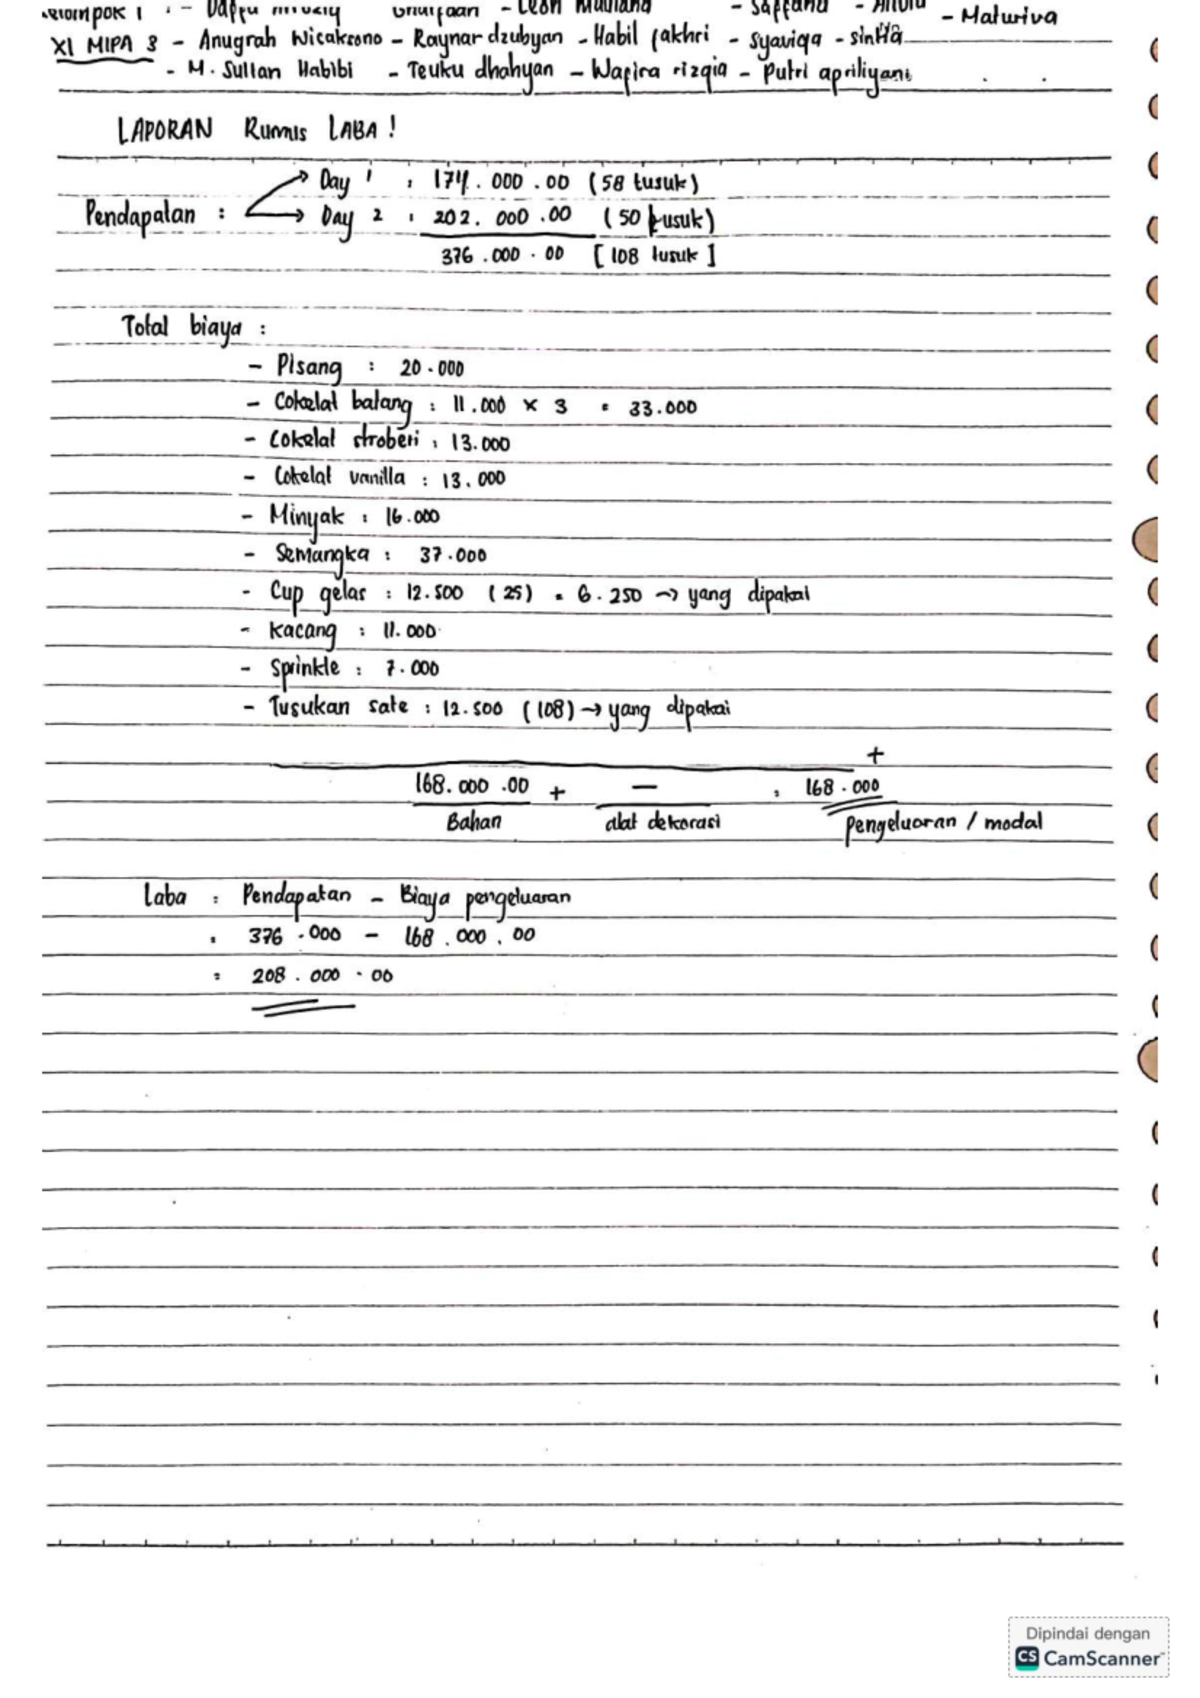 Kelompok 1 : - Daffu - Leon Maulana - Saffana - Maturiva
XI MIPA 3 - Anugrah Wicaksono - Raynar dzubyan - Habil fakhri - Syaviqa - sintia
- M. Sultan Habibi - Teuku dhahyan - Wafira rizqia - Putri apriliyani
LAPORAN Rumus LABA !
Day 1 : 174.000.00 (58 tusuk)
Pendapatan :
Day 2 : 202.000.00 (50 tusuk)
376.000.00 [108 tusuk]
Total biaya :
- Pisang : 20.000
- Cokelat batang : 11.000 x 3 = 33.000
- Cokelat stroberi : 13.000
- Cokelat vanilla : 13.000
- Minyak : 16.000
- Semangka : 37.000
- Cup gelas : 12.500 (25) = 6.250 → yang dipakai
- Kacang : 11.000
- Sprinkle : 7.000
- Tusukan sate : 12.500 (108) → yang dipakai
+
168.000.00 + — = 168.000
Bahan alat dekorasi pengeluaran / modal
Laba = Pendapatan - Biaya pengeluaran
= 376.000 - 168.000.00
= 208.000.00
Dipindai dengan
CS CamScanner